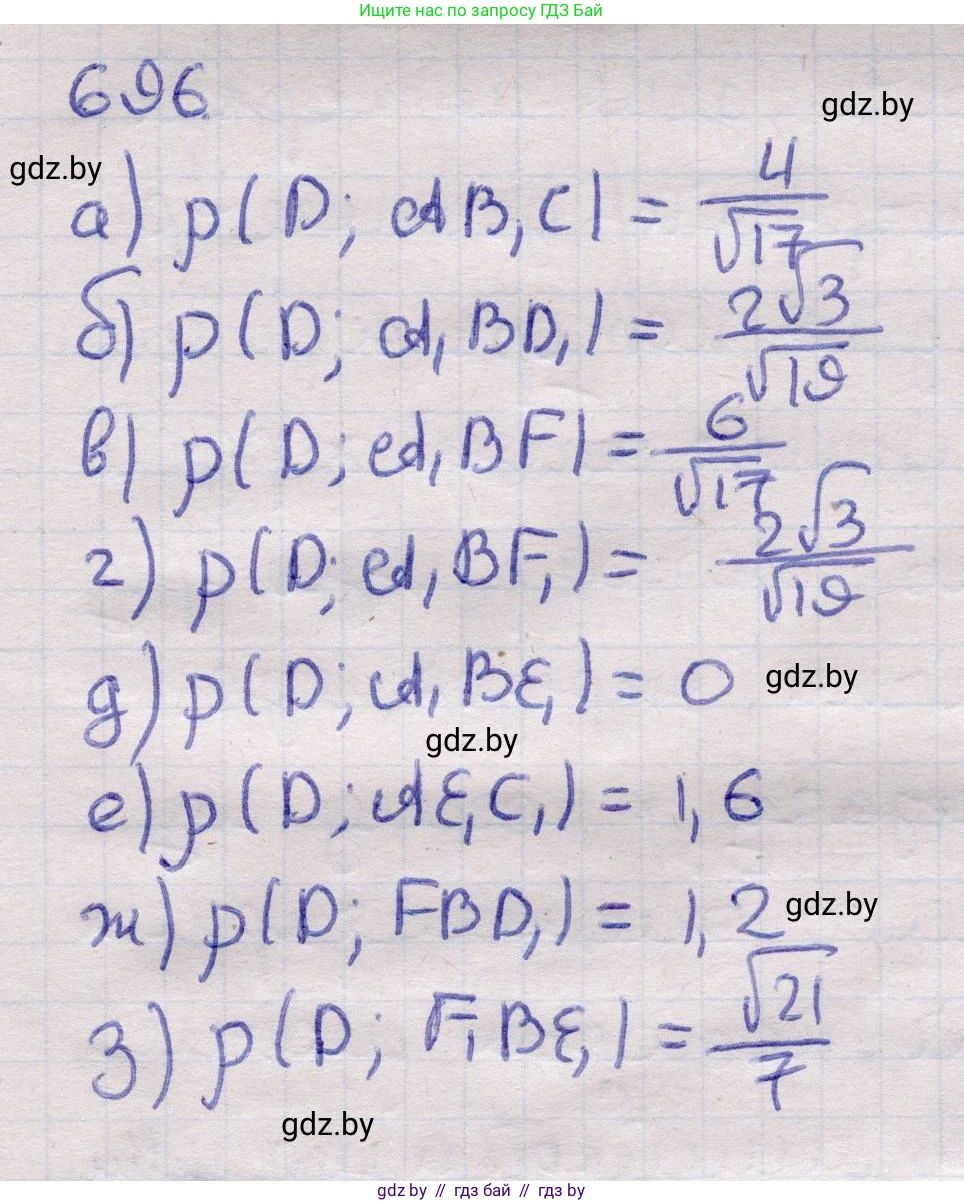 Ищите нас по запросу ГДЗ Бай
696
gdz.by
gdz.by
а) ρ(D; AB₁C) = 4/√17
б) ρ(D; A₁BD₁) = 2√3/√19
в) ρ(D; A₁BF) = 6/√17
г) ρ(D; A₁BF₁) = 2√3/√19
д) ρ(D; A₁BE₁) = 0
gdz.by
gdz.by
е) ρ(D; AE₁C₁) = 1,6
ж) ρ(D; FBD₁) = 1,2
gdz.by
з) ρ(D; F₁BE₁) = √21/7
gdz.by
gdz.by // гдз бай // gdz.by